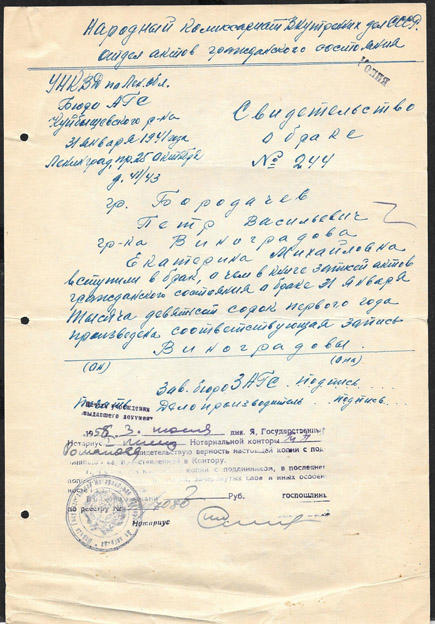 Народный Комиссариат Внутренних дел СССР.
Отдел актов гражданского состояния
Копия
УНКВД по Лен. обл.
Бюро АГС
Куйбышевского р-на
31 января 1941 года
Ленинград, пр. 25 октября
д. 41/43
Свидетельство
о браке
№ 244
гр. Бородачев
Петр Васильевич
гр-ка Виноградова
Екатерина Михайловна
вступили в брак, о чем в книге записей актов
гражданского состояния о браке 31 января
тысяча девятсот сорок первого года
произведена соответствующая запись
Виноградовы.
(он) (она)
Зав. Бюро ЗАГС. подпись...
Делопроизводитель... подпись...
выдавшего документ
1958 3. июля дня. Я, Государственный
Нотариус Нотариальной конторы
Романова верность настоящей копии с под
в Контору.
с подлинником, в последнем
слов и иных особен
2 Руб. госпошлины
по реестру №
Нотариус